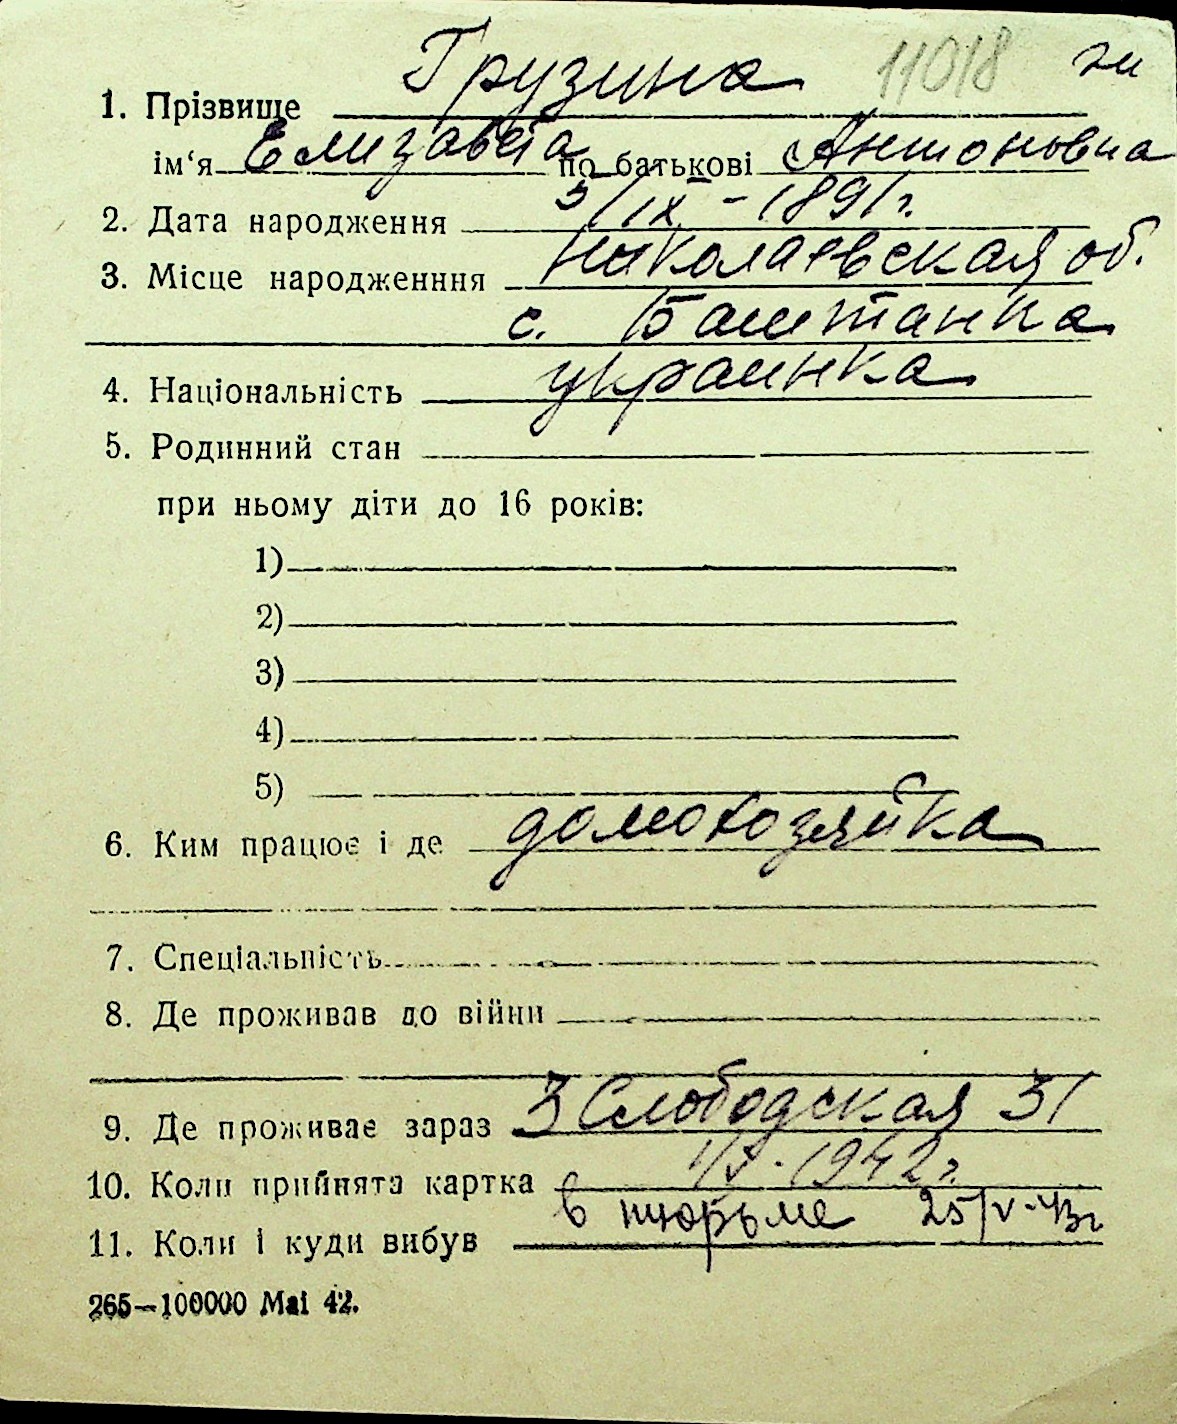 11018
1. Прізвище Грузина
ім‘я Елизавета по батькові Антоновна
2. Дата народження 5/IX - 1891 г.
3. Місце народженння Николаевская об.
с. Баштанка
4. Національність украинка
5. Родинний стан
при ньому діти до 16 років:
1)
2)
3)
4)
5)
6. Ким працює і де домохозяйка
7. Спеціальність
8. Де проживав до війни
9. Де проживає зараз 3 Слободская 31
10. Коли прийнята картка 1/V - 1942 г.
11. Коли і куди вибув в тюрьме 25/V-43г
265—100000 Mai 42.